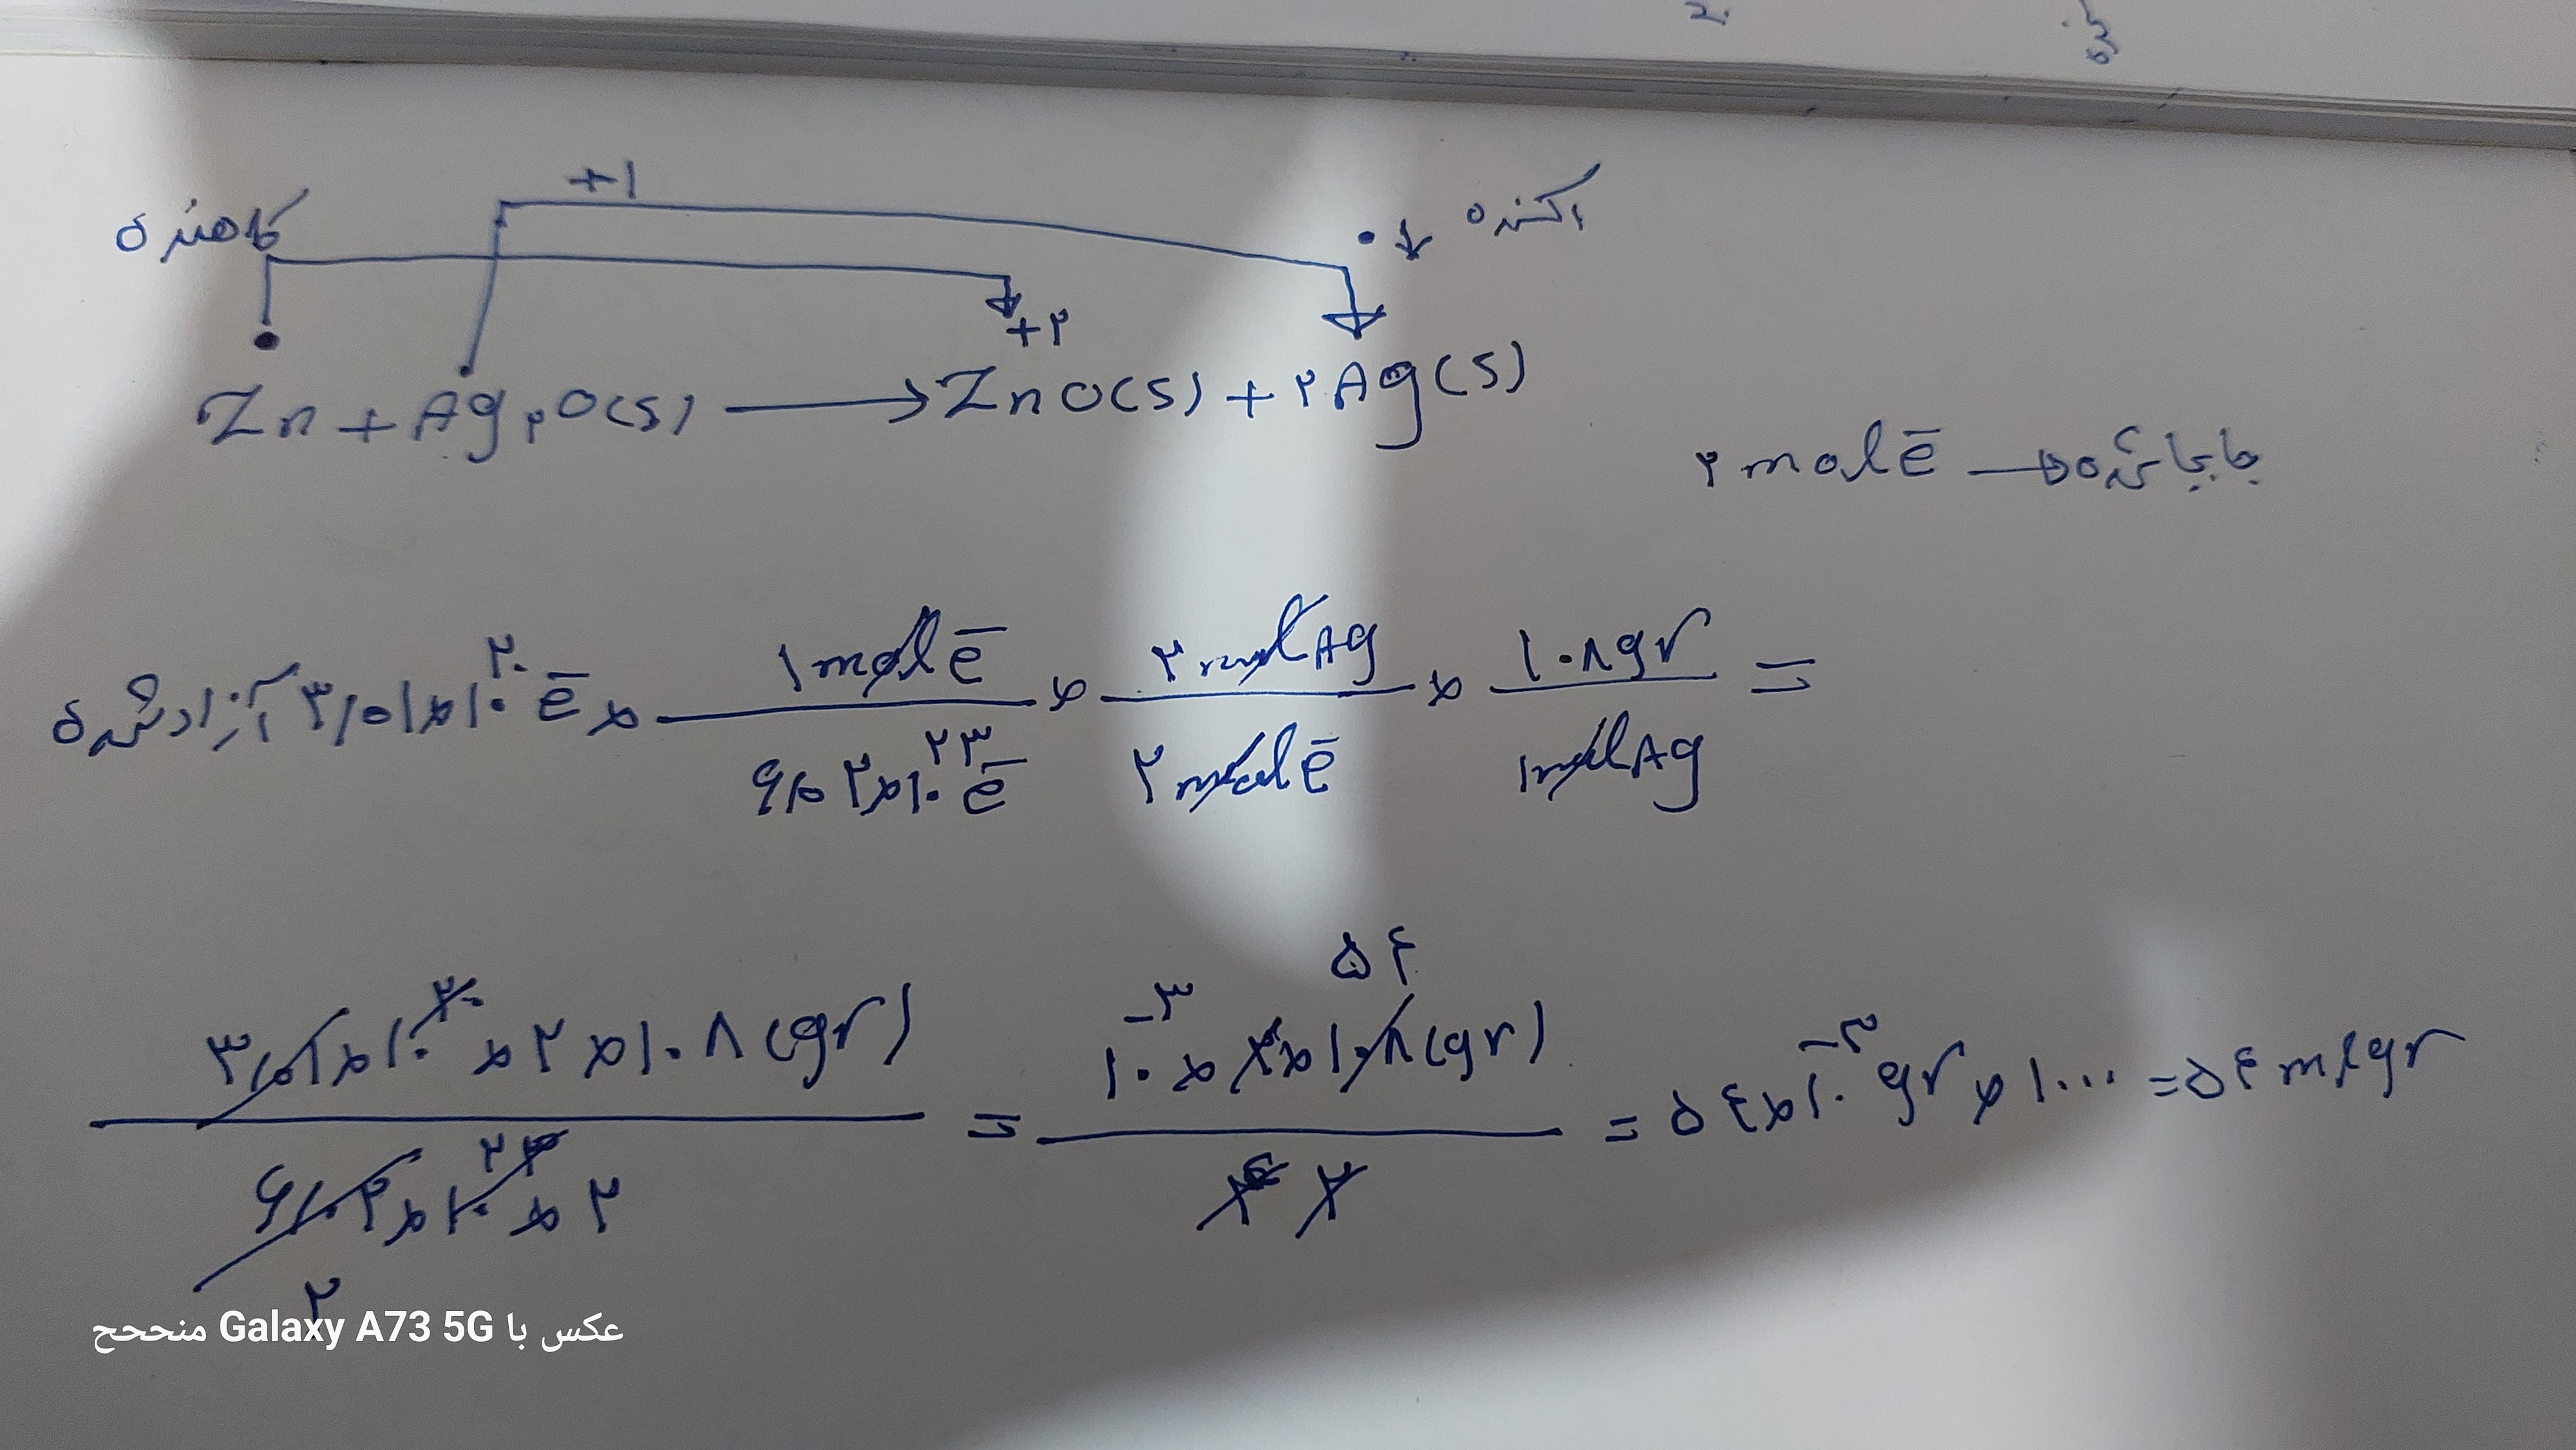 +۱
کاهنده
۰ ↓ اکسنده
۰
+۲
Zn + Ag۲O(s) ⟶ ZnO(s) + ۲Ag(s)
۲ mol ē → جابجا شده
آزاد شده ۳/۰۱×۱۰^۲۰ ē × ۱ mol ē / ۶/۰۲×۱۰^۲۳ ē × ۲ mol Ag / ۲ mol ē × ۱۰۸ gr / ۱ mol Ag =
۳/۰۱×۱۰^۲۰ × ۲ × ۱۰۸ (gr) / ۶/۰۲×۱۰^۲۳ × ۲ = ۱۰^-۳ × ۲ × ۱۰۸ (gr) / ۴ ۲ = ۵۴×۱۰^-۳ gr × ۱۰۰۰ = ۵۴ miligr
۵۴
۲
عکس با Galaxy A73 5G منححح